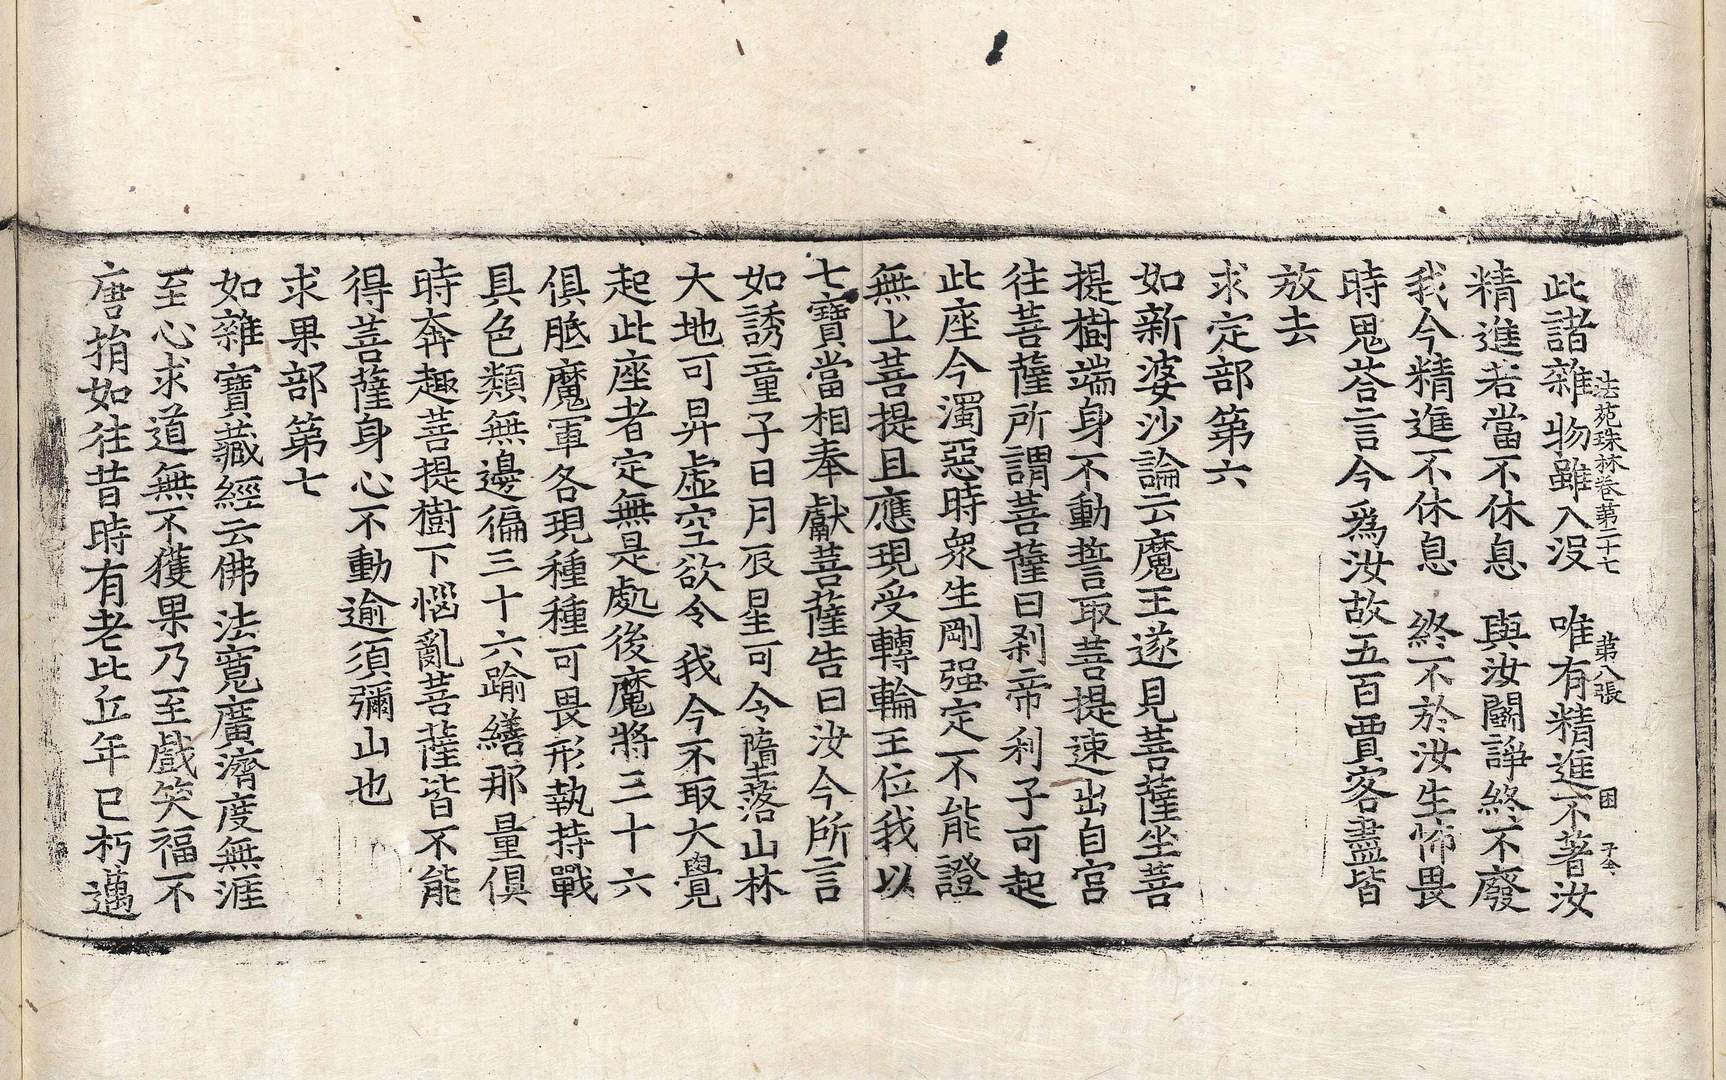 法苑珠林卷第二十七　第八張　困　子令
此諸雜物雖入沒　唯有精進不著汝
精進若當不休息　與汝鬭諍終不廢
我今精進不休息　終不於汝生怖畏
時鬼荅言今爲汝故五百賈客盡皆
放去
求定部第六
如新婆沙論云魔王遂見菩薩坐菩
提樹端身不動誓取菩提速出自宮
往菩薩所謂菩薩曰刹帝利子可起
此座今濁惡時衆生剛强定不能證
無上菩提且應現受轉輪王位我以
七寶當相奉獻菩薩告曰汝今所言
如誘童子日月辰星可令墮落山林
大地可昇虛空欲令我今不取大覺
起此座者定無是處後魔將三十六
俱胝魔軍各現種種可畏形執持戰
具色類無邊徧三十六踰繕那量俱
時奔趣菩提樹下惱亂菩薩皆不能
得菩薩身心不動逾須彌山也
求果部第七
如雜寶藏經云佛法寬廣濟度無涯
至心求道無不獲果乃至戲笑福不
唐捐如往昔時有老比丘年已朽邁